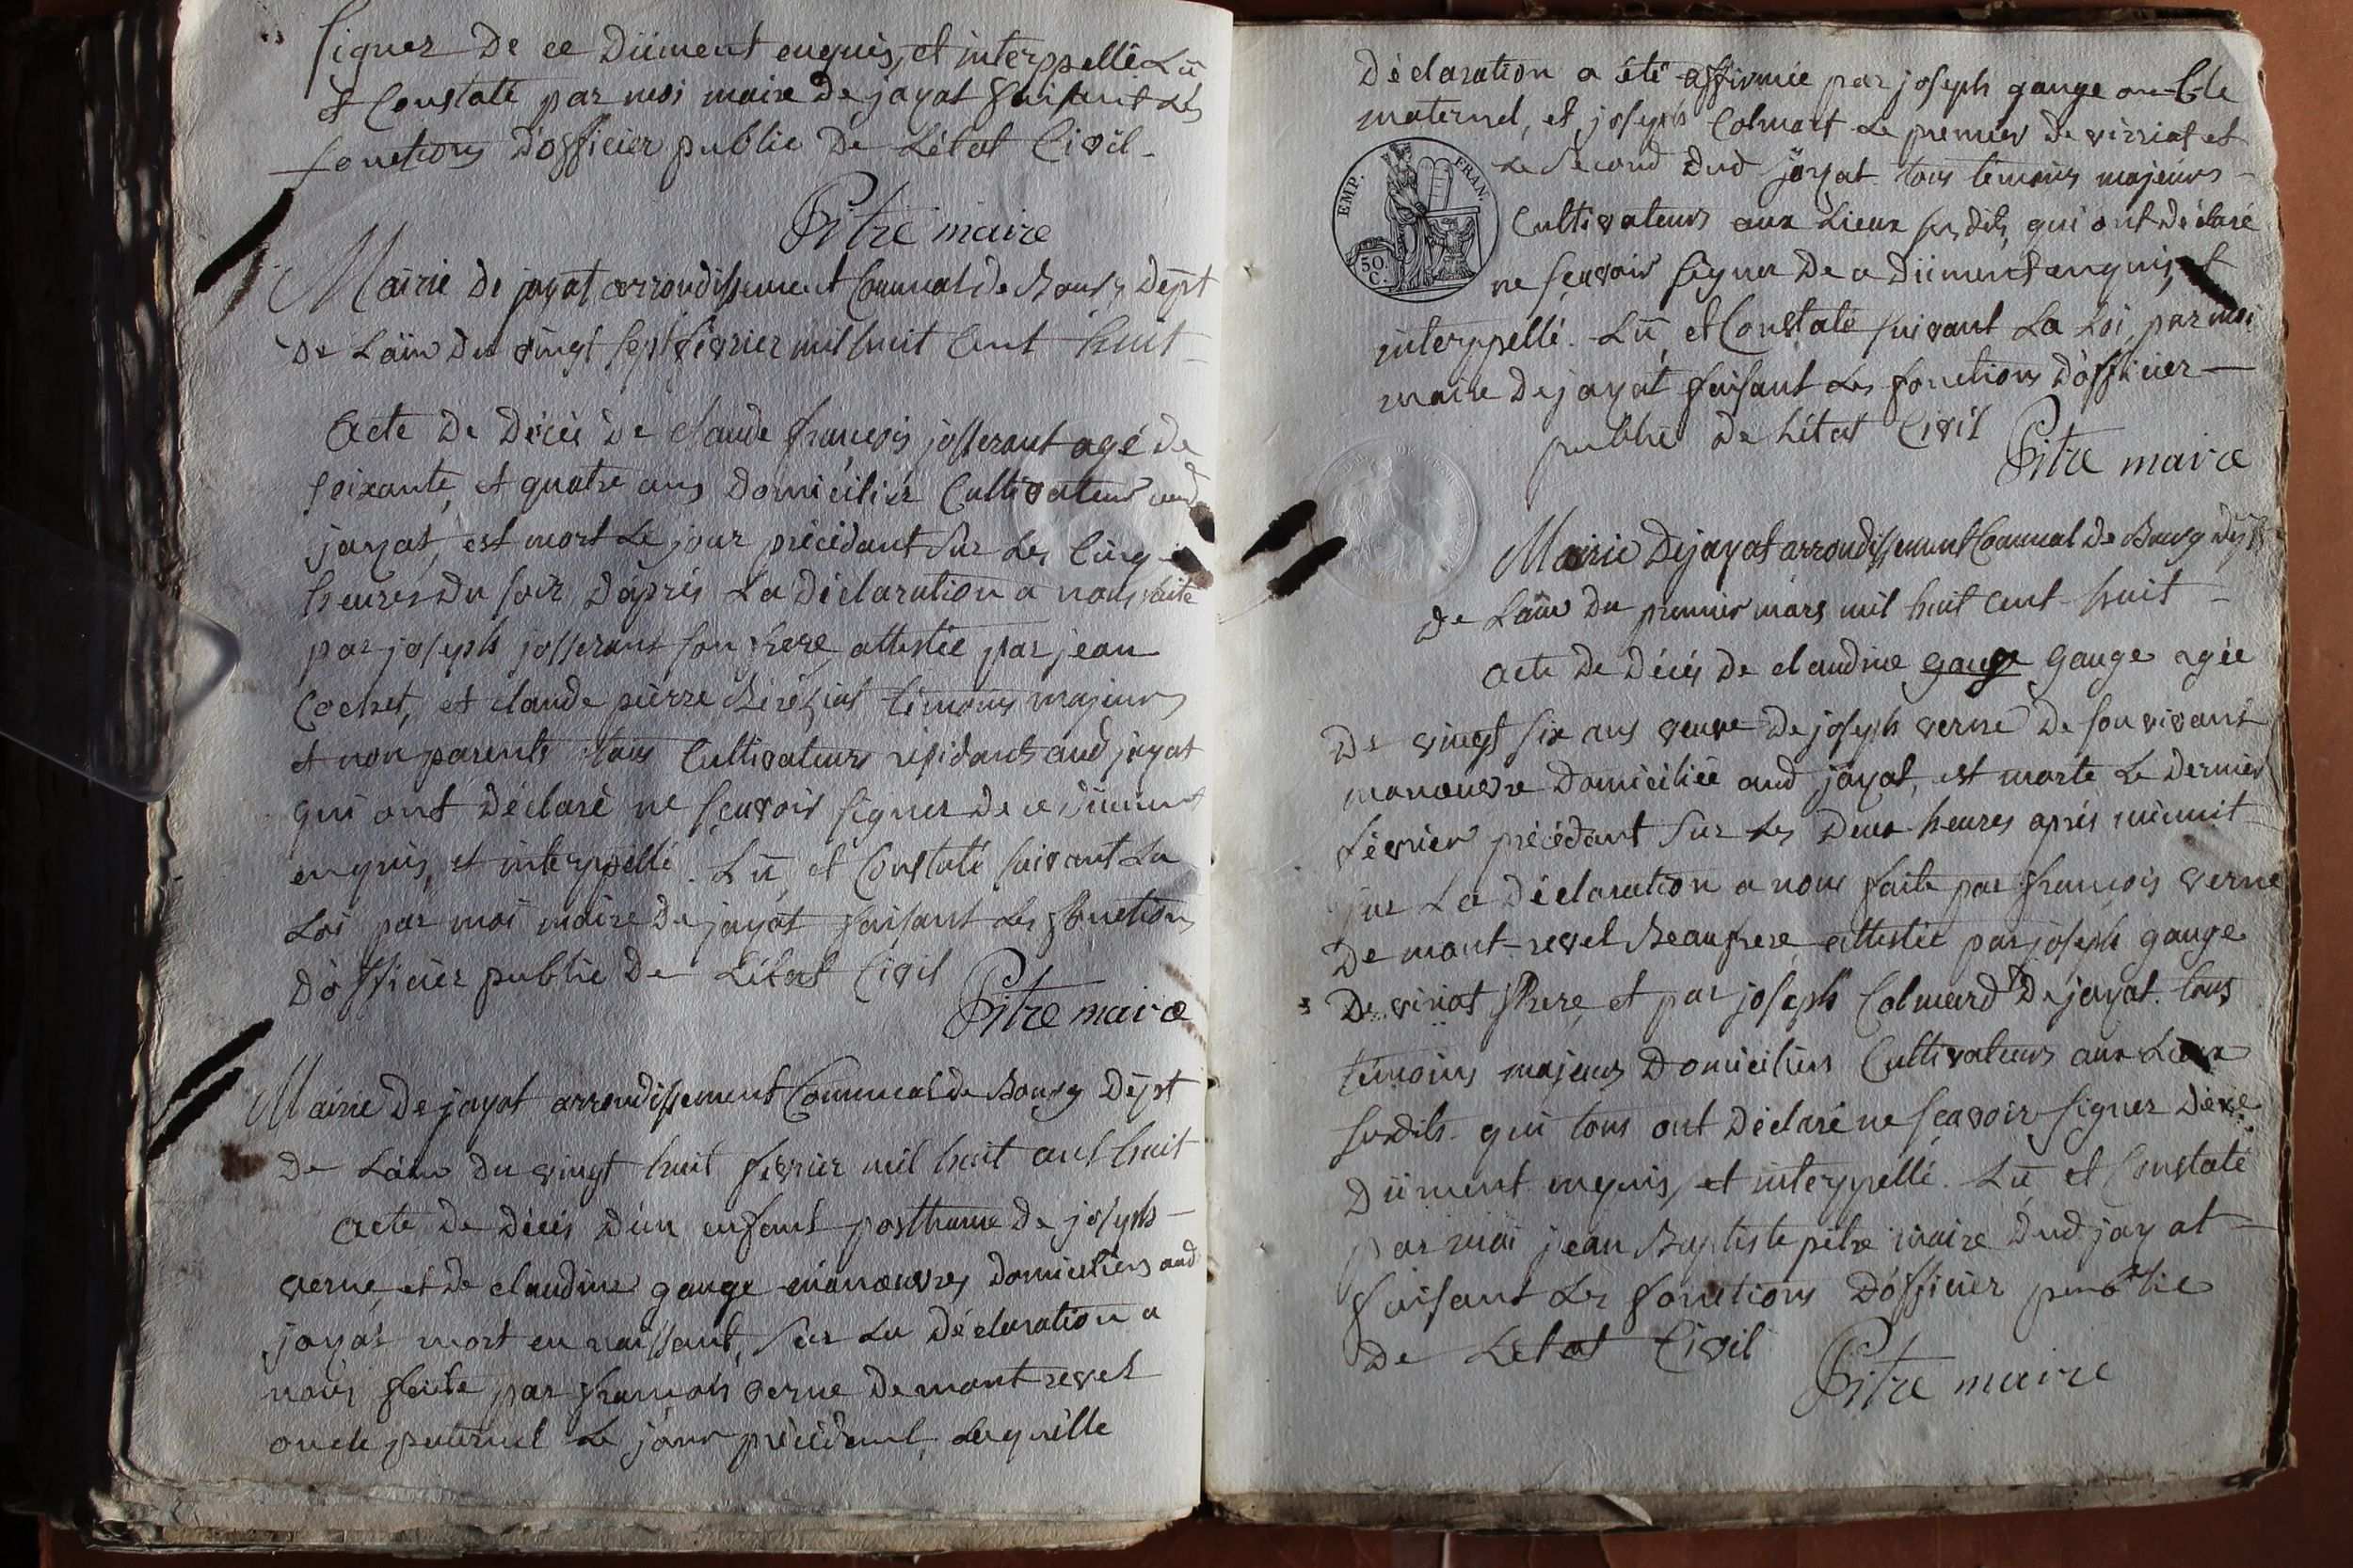 signer de ce düement enquis, et interppellé Lü
et Constaté par moi maire de jayat faisant Les
fonctions d'officier public de L'état Civil -
Pitre maire
Mairie de jayat arrondissement Communal de Bourg dept
de L'ain du vingt sept février mil huit Cent huit -
Acte de décès de claude françois josserant agé de
soixante, et quatre ans domicilier Cultivateur aud
jayat, est mort Le jour précédant sur Les Cinq
heures du soir d'après La déclaration a nous faite
par joseph josserant son frere, attestée par jean
Cochet, et claude pierre témoins majeurs
et non parents tous Cultivateurs résidants aud jayat
qui ont déclaré ne sçavoir signer de ce düement
enquis, et interppellé. Lü, et Constaté suivant La
Loi par moi maire de jayat faisant Les fonctions
d'officier public de L'état Civil
Pitre maire
Mairie de jayat arrondissement Communal de Bourg dept
de L'ain du vingt huit fevrier mil huit cent huit
Acte de décés d'un enfant posthume de joseph -
verne, et de claudine gauge manœuvres domiciliers aud
jayat mort en naissant, sur La déclaration a
nous faite par françois verne de mont revel
oncle paternel Le jour précédant, Laquelle
déclaration a été affirmée par joseph gauge oncle
maternel, et joseph Colmart Le premier de virriat et
EMP. FRAN.
50 C.
Le second dud jayat tous temoins majeurs -
Cultivateurs aux Lieux susdits, qui ont déclaré
ne sçavoir signer de ce düement enquis, et
interppellé. Lü, et Constaté suivant La Loi par moi
maire de jayat faisant Les fonctions d'officier -
public de L'état Civil
Pitre maire
Mairie de jayat arrondissement Communal de Bourg dept
de L'ain du premier mars mil huit cent huit -
Acte de décès de claudine gauge gauge agée
de vingt six ans veuve de joseph verne de son vivant
manœuvre domiciliée aud jayat, est morte Le dernier
février précédant sur Les deux heures après minuit -
sur La déclaration a nous faite par françois verne
de mont-revel Beaufrere attestée par joseph gauge
de viriat frere, et par joseph Colmard de jayat. tous
témoins majeurs domiciliers Cultivateurs aux Lieux
susdits qui tous ont déclaré ne sçavoir signer de ce
düment enquis, et interppellé. Lü et Constaté
par moi jean Baptiste pitre maire dud jayat -
faisant Les fonctions d'officier public
de L'etat Civil
Pitre maire